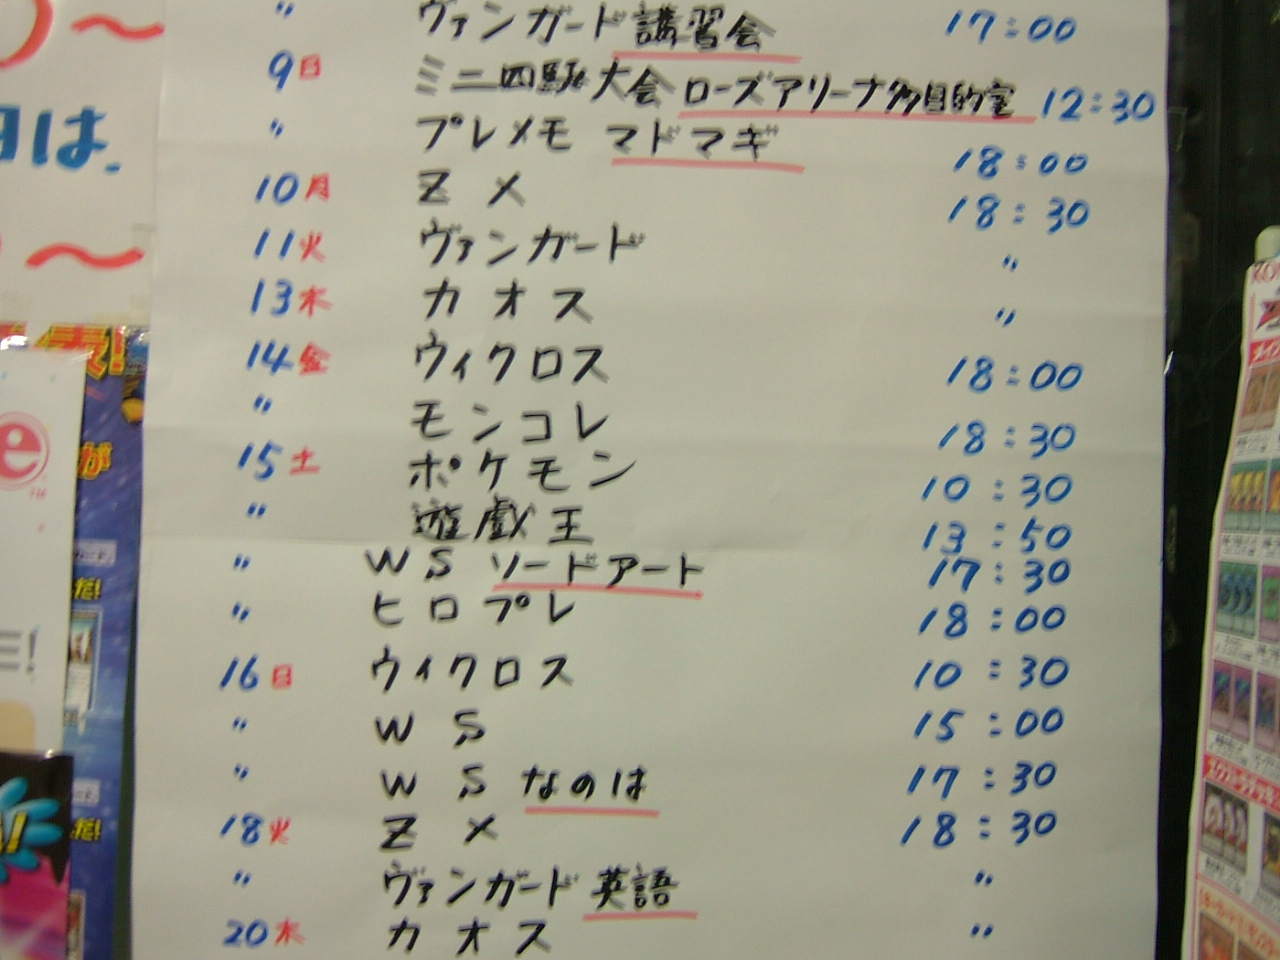 〃 ヴァンガード 講習会 17:00
9日 ミニ四駆大会 ローズアリーナ多目的室 12:30
〃 プレメモ マドマギ 18:00
10月 Z X 18:30
11火 ヴァンガード 〃
13木 カオス 〃
14金 ウィクロス 18:00
〃 モンコレ 18:30
15土 ポケモン 10:30
〃 遊戯王 13:50
〃 WS ソードアート 17:30
〃 ヒロプレ 18:00
16日 ウィクロス 10:30
〃 WS 15:00
〃 WS なのは 17:30
18火 Z X 18:30
〃 ヴァンガード 英語 〃
20木 カオス 〃
は、
e
が
だ!